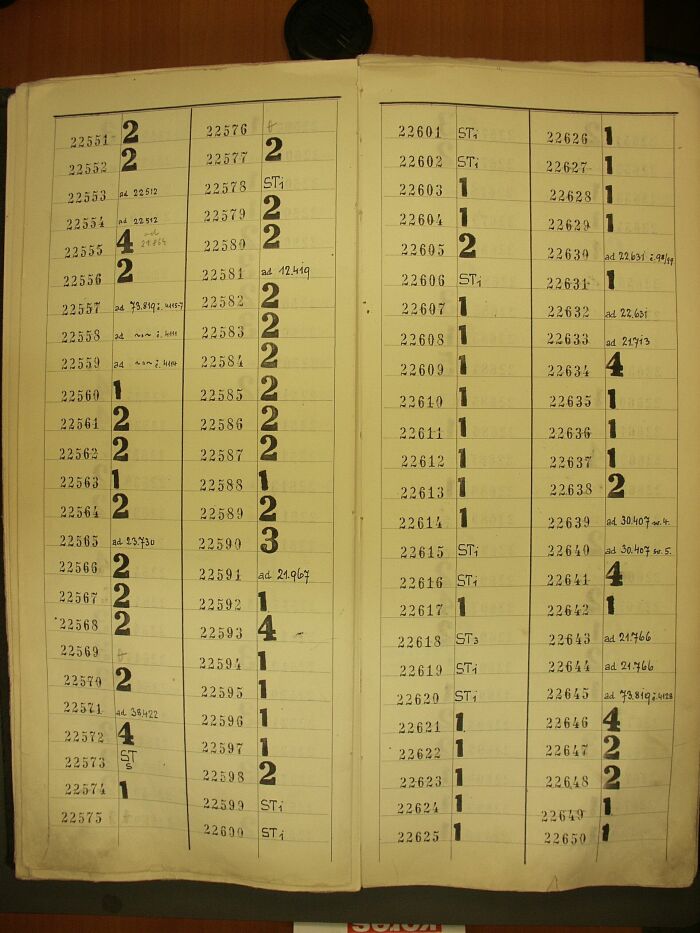 22551 2
22552 2
22553 ad 22512
22554 ad 22512
22555 4 ad 21.864
22556 2
22557 ad 73.819 i. 4115-7
22558 ad ~"~ i. 4111
22559 ad ~"~ i. 4117
22560 1
22561 2
22562 2
22563 1
22564 2
22565 ad 23.730
22566 2
22567 2
22568 2
22569 +
22570 2
22571 ad 38.422
22572 4
22573 ST 5
22574 1
22575
22576 +
22577 2
22578 ST1
22579 2
22580 2
22581 ad 12.419
22582 2
22583 2
22584 2
22585 2
22586 2
22587 2
22588 1
22589 2
22590 3
22591 ad 21.967
22592 1
22593 4
22594 1
22595 1
22596 1
22597 1
22598 2
22599 ST1
22600 ST1
22601 ST1
22602 ST1
22603 1
22604 1
22605 2
22606 ST1
22607 1
22608 1
22609 1
22610 1
22611 1
22612 1
22613 1
22614 1
22615 ST1
22616 ST1
22617 1
22618 ST3
22619 ST1
22620 ST1
22621 1
22622 1
22623 1
22624 1
22625 1
22626 1
22627 1
22628 1
22629 1
22630 ad 22.631 i. 98/99
22631 1
22632 ad 22.631
22633 ad 21.713
22634 4
22635 1
22636 1
22637 1
22638 2
22639 ad 30.407 sv. 4.
22640 ad 30.407 sv. 5.
22641 4
22642 1
22643 ad 21.766
22644 ad 21.766
22645 ad 73.819 i. 4128
22646 4
22647 2
22648 2
22649 1
22650 1